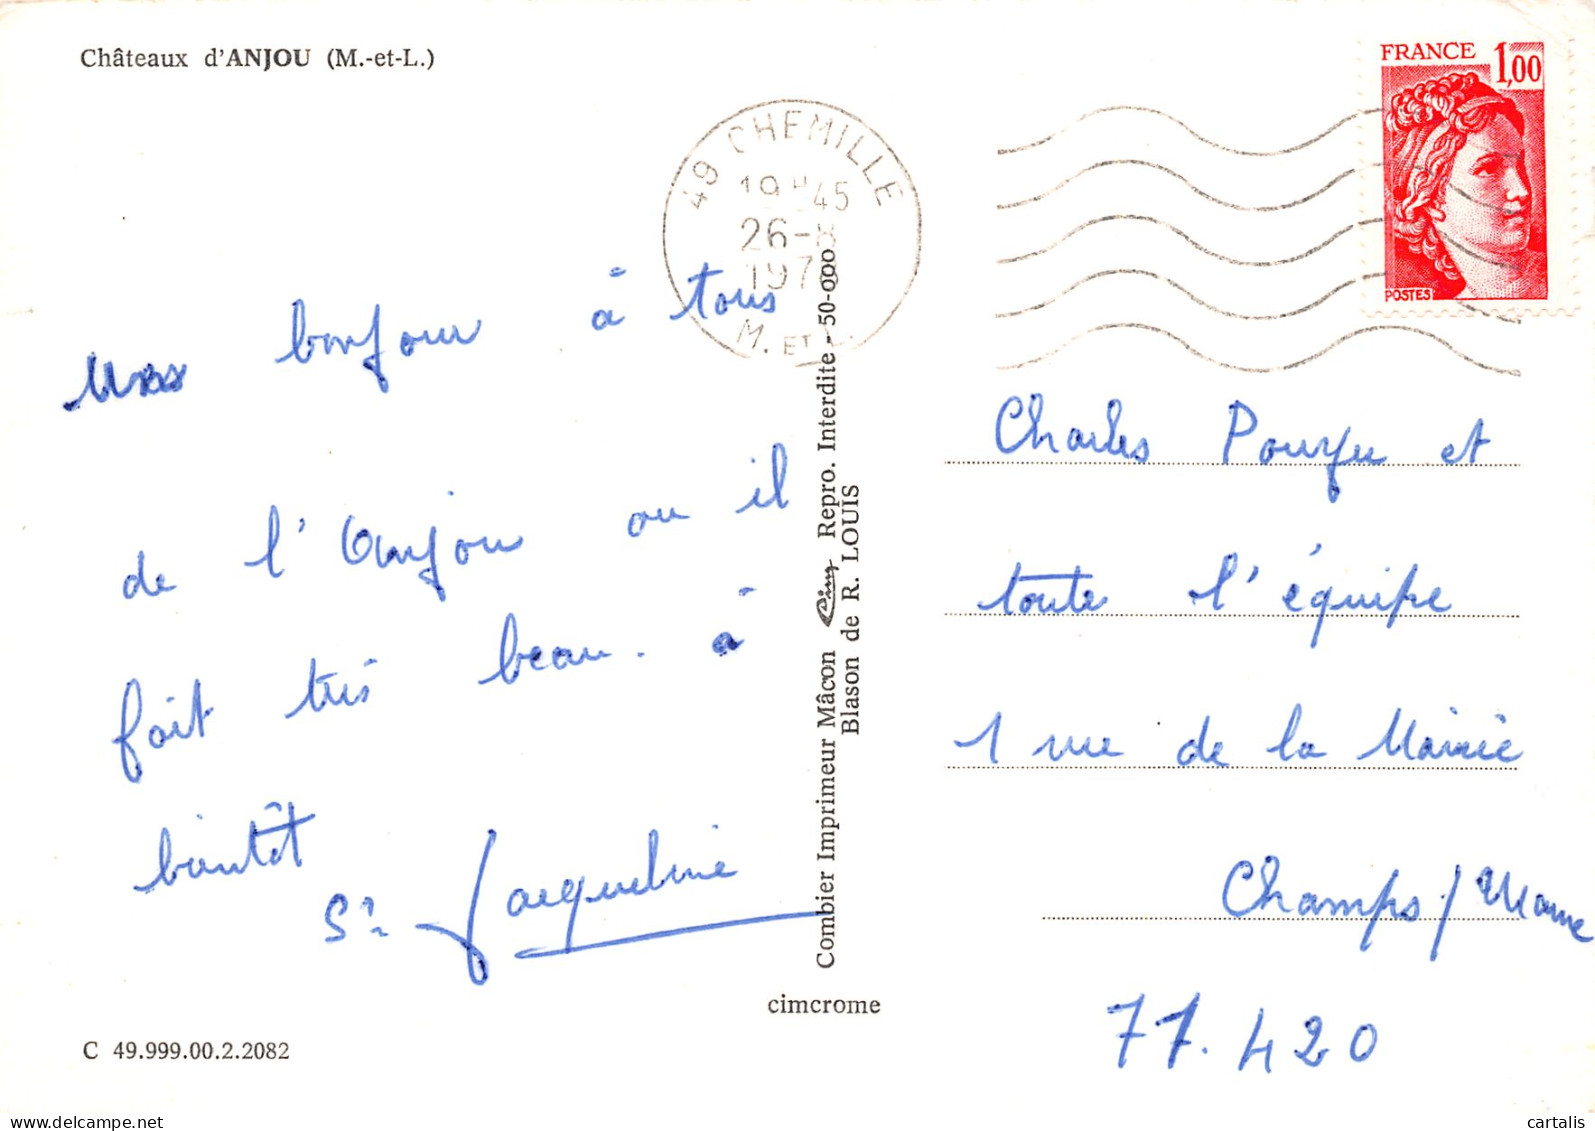 Châteaux d'ANJOU (M.-et-L.)
FRANCE 1,00
POSTES
49 CHEMILLE
19 H 45
26-8
197
M. ET L.
bonjour à tous
de l'Anjou ou il
fait très beau. à
bientôt
Sr Jacqueline
Combier Imprimeur Mâcon Cim Repro. Interdite - 50-000
Blason de R. LOUIS
cimcrome
C 49.999.00.2.2082
Charles Pouyu et
toute l'équipe
1 rue de la Mairie
Champs / Marne
77.420
cartalis